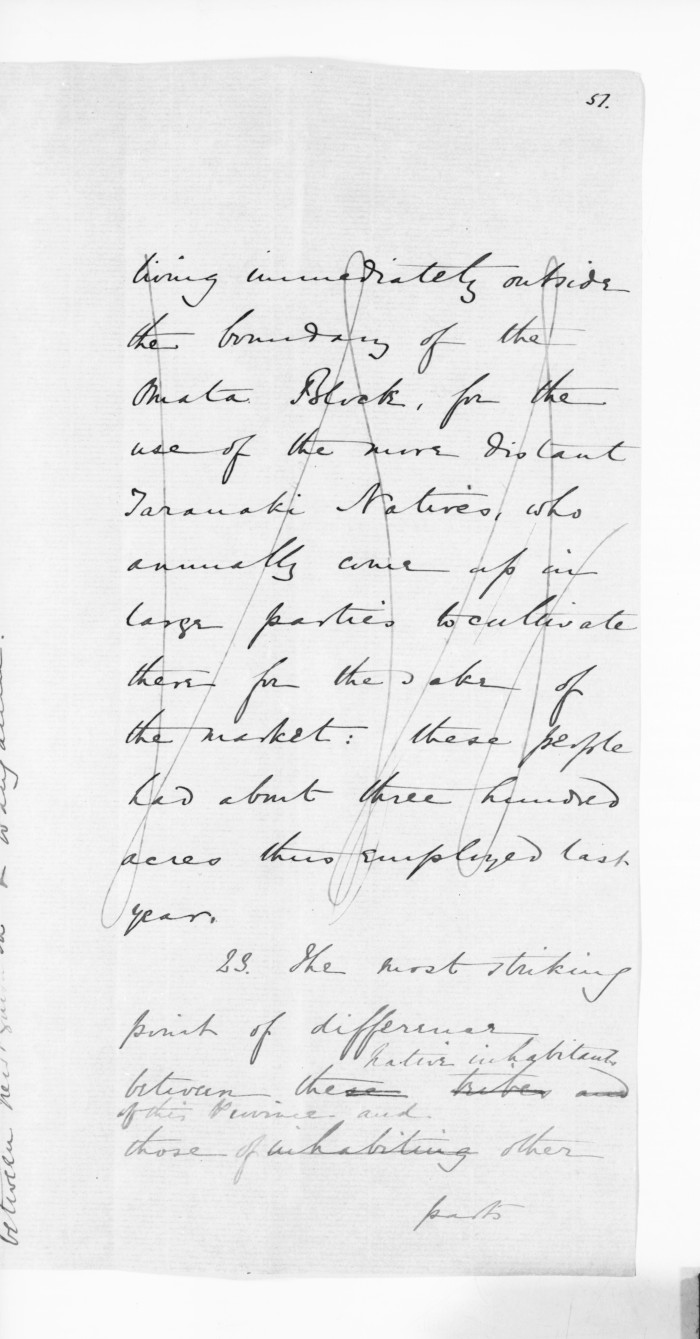 51.
living immediately outside
the boundary of the
Omata Block, for the
use of the more distant
Taranaki Natives, who
annually come up in
large parties to cultivate
there for the sake of
the market: these people
had about three hundred
acres thus employed last
year.
23. The most striking
point of difference
native inhabitants
between these tribes and
of this Province and
those of inhabiting other
parts
between New